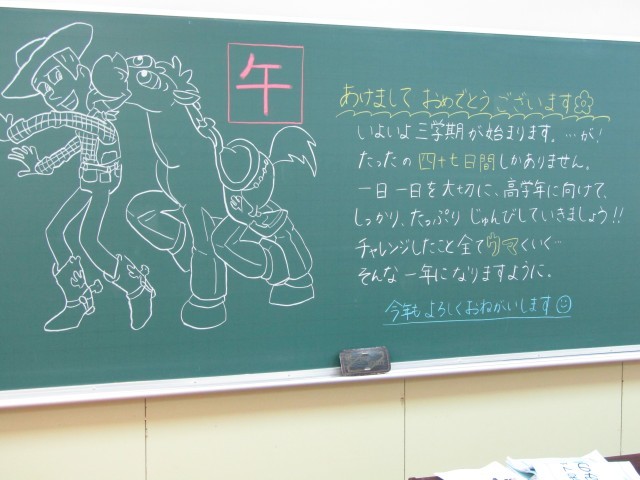 午
あけまして おめでとう ございます
いよいよ 三学期が始まります。…が!
たったの 四十七日間 しかありません。
一日一日を大切に、高学年に向けて、
しっかり、たっぷり じゅんびしていきましょう!!
チャレンジしたこと全てウマくいく…
そんな一年になりますように。
今年もよろしくおねがいします